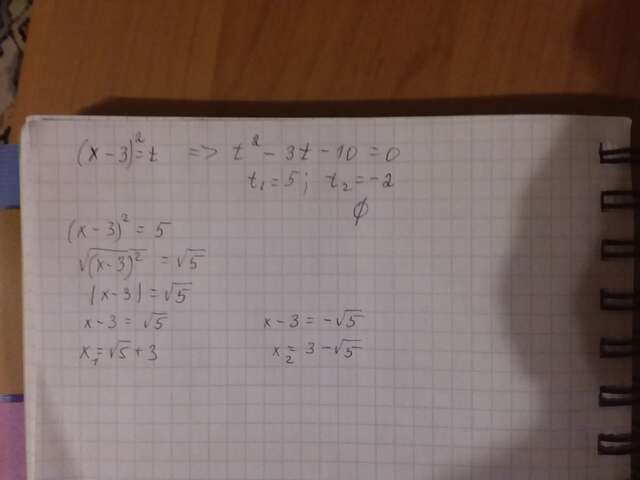 (x-3)²=t => t² - 3t - 10 = 0
t₁=5; t₂=-2
∅
(x-3)² = 5
√(x-3)² = √5
|x-3| = √5
x-3 = √5 x-3 = -√5
x₁=√5+3 x₂= 3-√5